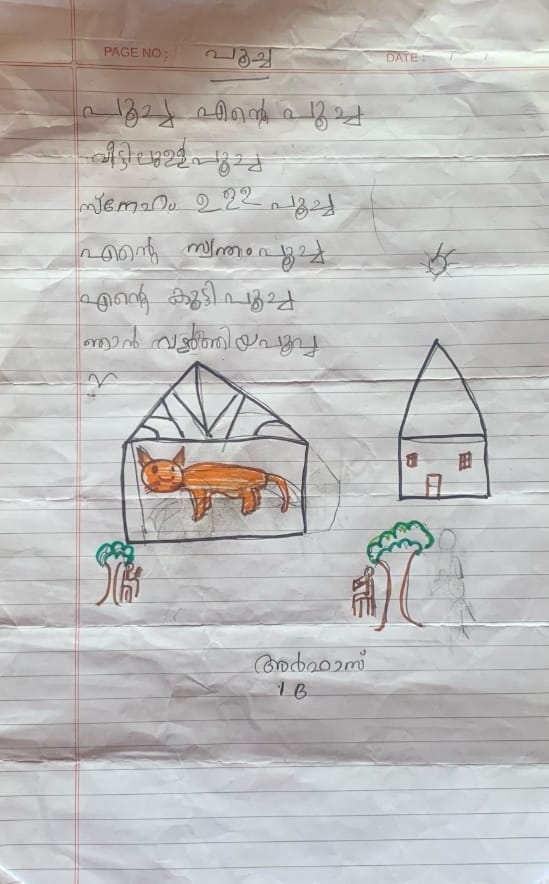 PAGE NO: പൂച്ച DATE: / /
പൂച്ച എന്റെ പൂച്ച
വീട്ടിലുള്ള പൂച്ച
സ്നേഹം ഉള്ള പൂച്ച
എന്റെ സ്വന്തം പൂച്ച
എന്റെ കുട്ടി പൂച്ച
ഞാൻ വളർത്തിയ പൂച്ച
1 B